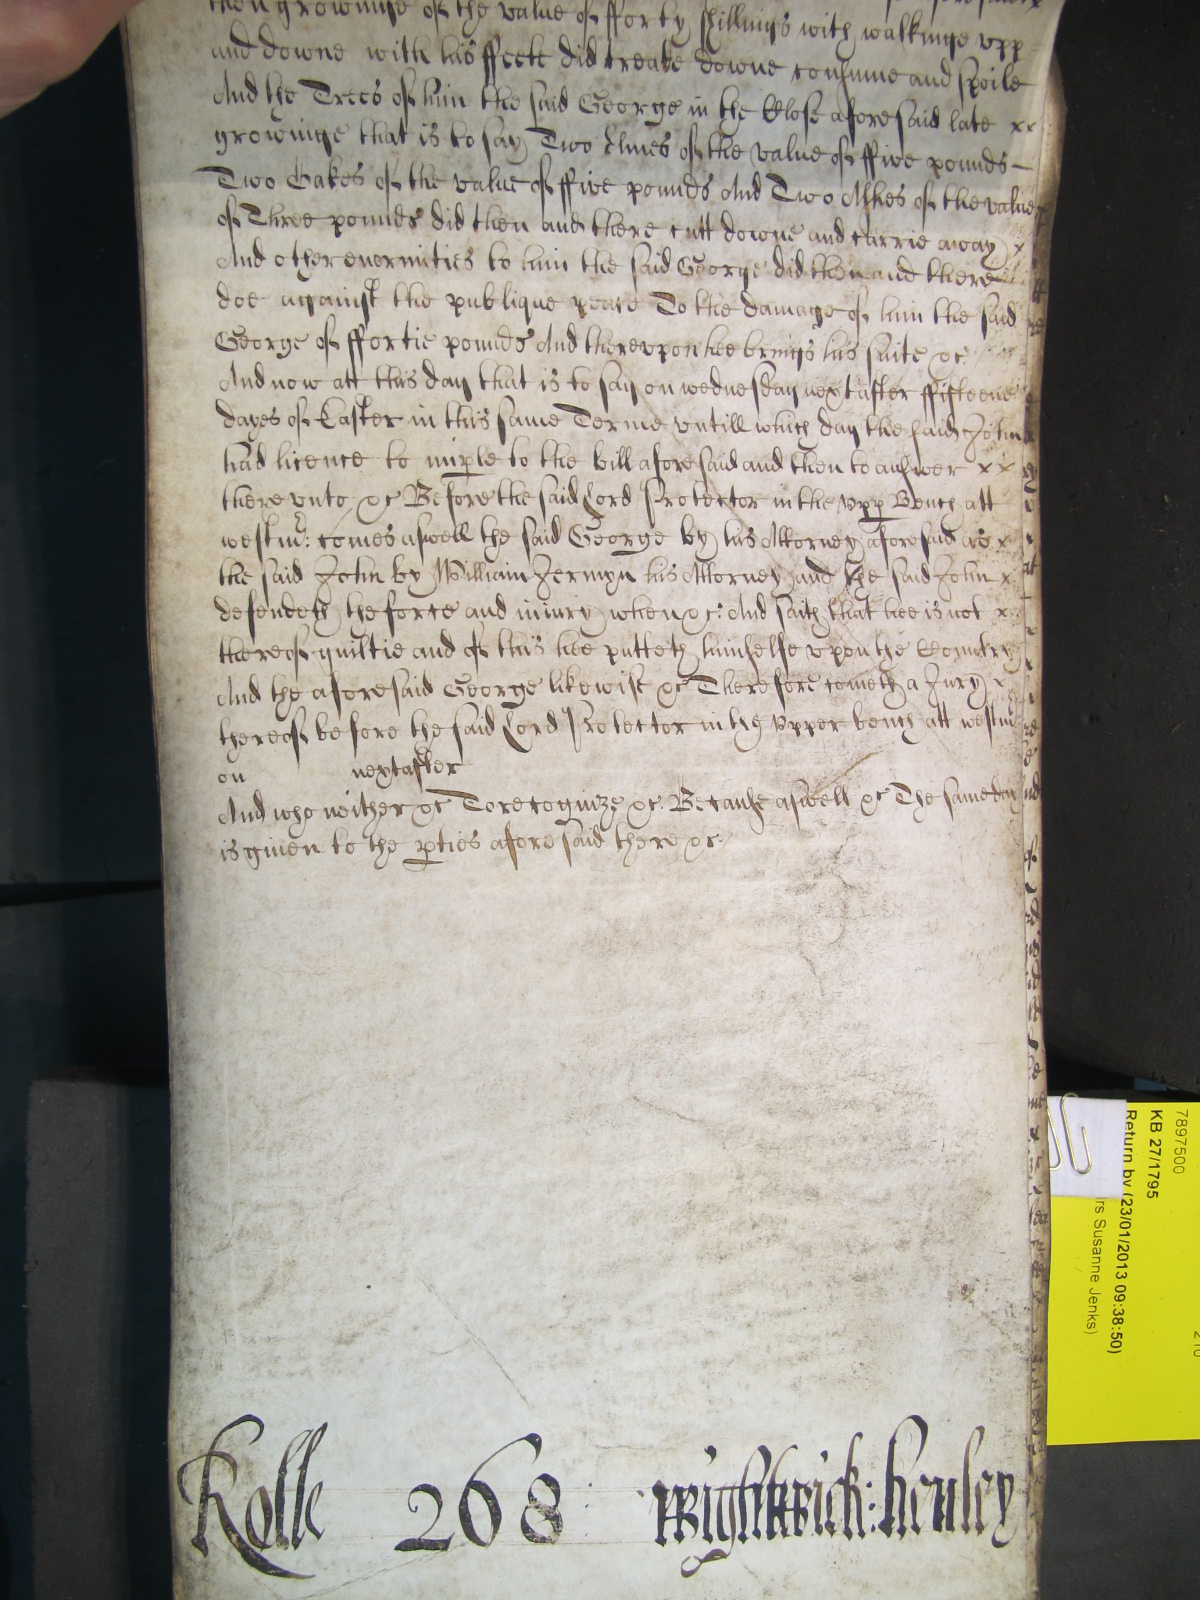 then growinge of the value of fforty shillings with walkinge vpp
and downe with his ffeete did treade downe consume and spoile
And the Trees of him the said George in the Close aforesaid late xx
growinge that is to say Two Elmes of the value of ffive pounds
Two Oakes of the value of ffive pounds And Two Ashes of the value
of Three pounds did then and there cutt downe and carrie away x
And other enormities to him the said George did then and there
doe against the publique peace To the damage of him the said
George of ffortie pounds And therevpon hee brings his suite &c
And now att this day that is to say on wednesday next after ffifteene
dayes of Easter in this same Terme vntill which day the said John
had licence to imple to the bill aforesaid and then to answer xx
there vnto &c Before the said Lord Protector in the vpp Bench att
westmr: comes aswell the said George by his Attorney aforesaid as x
the said John by William Jermyn his Attorney and the said John x
defendeth the force and iniury when &c: And saith that hee is not x
thereof guiltie and of this hee putteth himselfe vpon the Countrey
And the aforesaid George likewise &c Therefore cometh a Jury x
thereof before the said Lord Protector in the vpper bench att westmr
on next after
And who neither &c To recognize &c Because aswell &c The same day
is given to the pties aforesaid there &c
Rolle 268 Wightwick: Henley
7897500
KB 27/1795
Return by (23/01/2013 09:38:50)
rs Susanne Jenks)
210